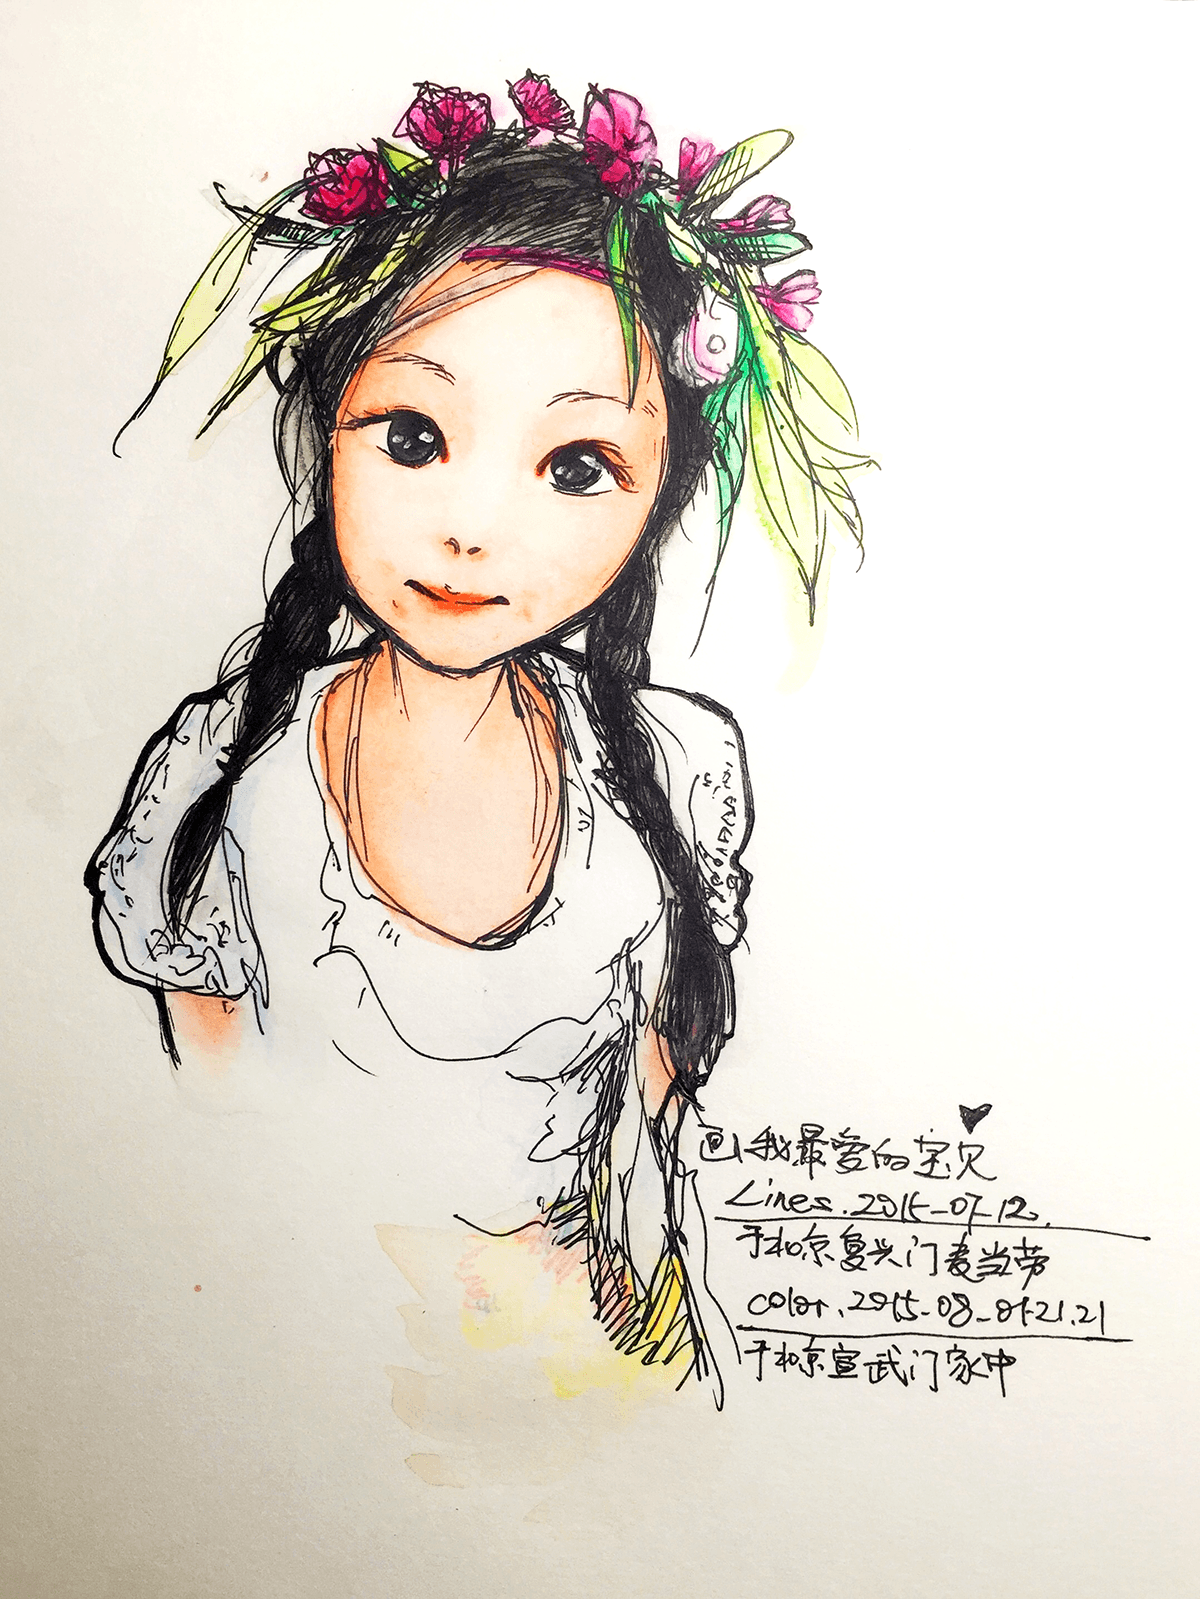 画我最爱的宝贝
Lines.2015-07-12.
于北京复兴门麦当劳
color.2015-08-01-21.21
于北京宣武门家中